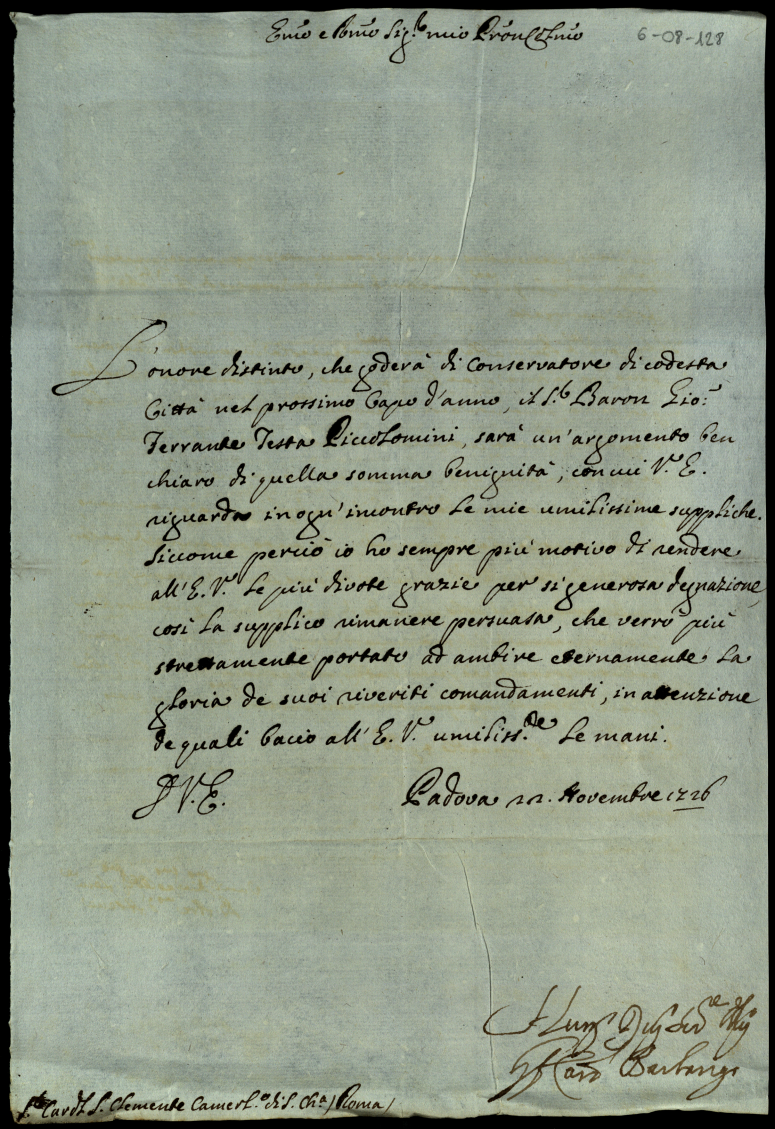 Emo e Rmo Sig.r mio Pron Colmo
6-08-128
L'onore distinto, che goderà di Conservatore di codesta
Città nel prossimo Capo d'anno, il S.r Baron Gio:
Ferrante Testa Piccolomini, sarà un'argomento ben
chiaro di quella somma benignità, con cui V.E.
riguarda in ogn'incontro le mie umilissime suppliche.
Siccome perciò io ho sempre più motivo di rendere
all'E.V. le più divote grazie per sì generosa degnazione,
così la supplico rimanere persuasa, che verrò più
strettamente portato ad ambire eternamente la
gloria de suoi riveriti comandamenti, in attenzione
de quali bacio all'E.V. umiliss.te le mani.
D V.E.
Padova 22. Novembre 1726
G F Card Barbarigo
S.r Card.l S. Clemente Camerl.o di S. Cha / Roma /